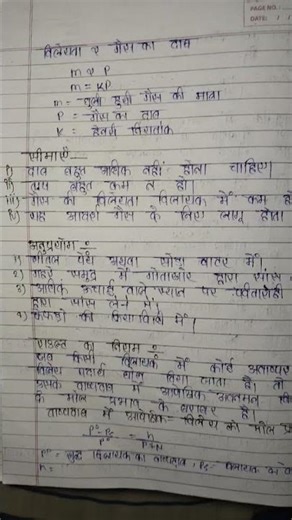 PAGE NO.
DATE: / /
विलेयता ∝ गैस का दाब
m ∝ P
m = KP
m = घुली हुयी गैस की मात्रा
P = गैस का दाब
K = हेनरी स्थिरांक
सीमाएँ
i) दाब बहुत अधिक नहीं होना चाहिए।
ii) ताप बहुत कम न हो।
iii) गैस की विलेयता विलायक में कम हो
iv) यह आदर्श गैस के लिए लागू होता
अनुप्रयोग :
1) शीतल पेय अथवा सोडा वाटर में।
2) गहरे समुद्र में गोताखोर द्वारा
3) अधिक ऊंचाई वाले स्थान पर पर्वतारोही
द्वारा सांस लेने में।
4) फेफड़ों की क्रियाविधि में।
राउल्ट का नियम :
जब किसी विलायक में कोई अवाष्पशील
विलेय पदार्थ घोल दिया जाता है। तो
उसके वाष्पदाब में आपेक्षिक अवनमन
के मोल प्रभाज के बराबर है।
वाष्पदाब में आपेक्षिक = विलेय की मोल
P° - Ps / P° = n / n+N
P° = शुद्ध विलायक का वाष्पदाब, Ps =
n =